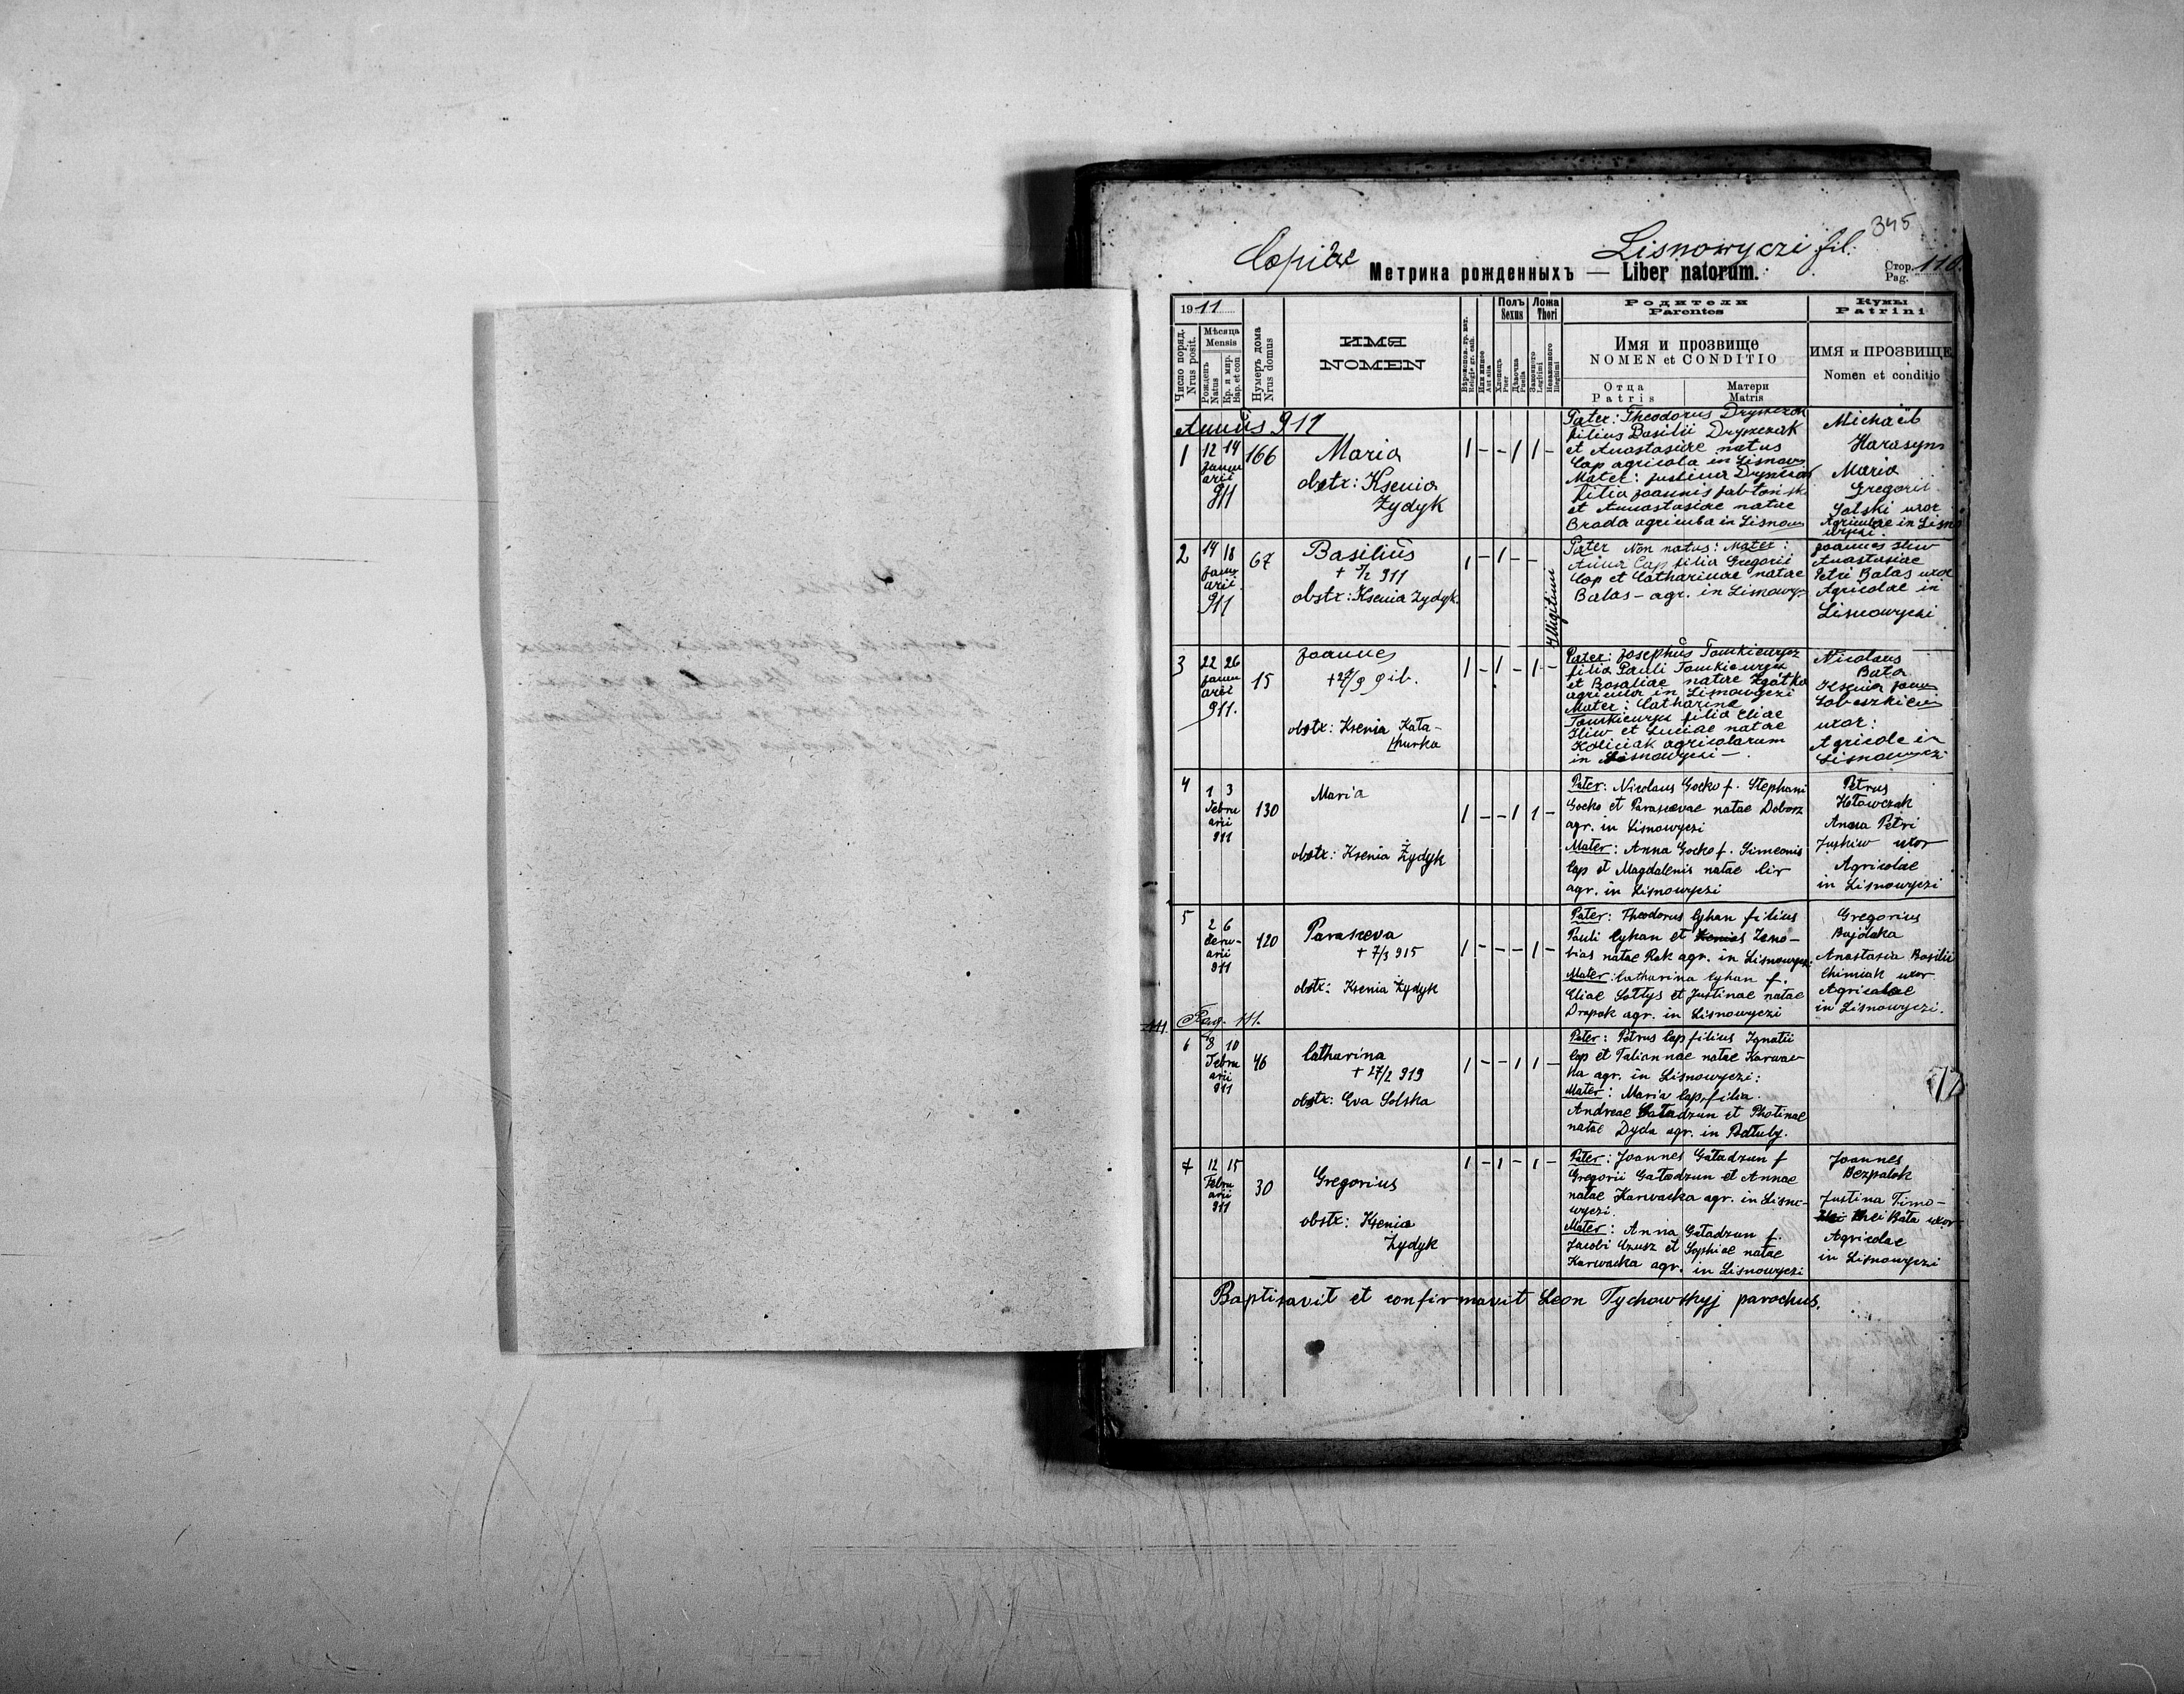 345
Copiae
Lisnowyczi fil.
Метрика рожденныхъ — Liber natorum.
Стор. Pag. 110.
1911
Число поряд. Nrus posit.
Мѣсяца Mensis
Рождень Natus
Кр. и мир. Bap. et con
Нумеръ дома Nrus domus
ИМЯ
NOMEN
Или иное Aut alia
Полъ Sexus
Хлопець Puer
Дѣвочка Puella
Ложа Thori
Законного Legitimi
Незаконного Illegitimi
Родители
Parentes
Имя и прозвище
NOMEN et CONDITIO
Отца Patris
Матери Matris
Кумы
Patrini
ИМЯ и ПРОЗВИЩЕ
Nomen et conditio
Annus 911
1
12 14
Janu
arii
911
166
Maria
obstr: Ksenia
Żydyk
1 - - 1 1 -
Pater: Theodorus Dryszczak
filius Basilii Dryszczak
et Anastasiae natus
Cap agricola in Lisnow
Mater: Justina
filia Joannis
et Annastasiae natae
Brada agricola in Lisnow
Michaël
Harasym
Maria
Gregorii
Solski uxor
Agricolae in Lisno
wyczi.
2
14 18
Janu
arii
911
67
Basilius
+ 5/2 911
obstr: Ksenia Zydyk
1 - 1 - -
Illigitium
Pater Non natus: Mater:
Anna Cap filia Gregorii
Cap et Catharinae natae
Balas - agr. in Lisnowy-
Joannes Iliw
Anastasiae
Petri Balas uxor
Agricolae in
Lisnowyczi
3
22 26
Janu
arii
911.
15
Joannes
obstr: Ksenia Kata-
1 - 1 - 1 -
Pater: Josephus Tomkiewycz
filia Pauli Tomkiewycz
et Rosaliae natae Zgátka
agricola in Lisnowyczi
Mater: Catharina
Tomkiewycz filia Eliae
Iliw et Luciae natae
Koliciak agricolarum
in Lisnowyczi —
Nicolaus
Bata
Ksenia
uxor:
Agricole in
Lisnowyczi
4
1 3
Febru
arii
911
130
Maria
obstr: Ksenia Żydyk
1 - - 1 1 -
Pater: Nicolaus Gocko f. Stephani
Gocko et Parascevae natae Dobosz
agr. in Lisnowyczi
Mater: Anna Gocko f. Simeonis
Cap et Magdalenis natae Cir
agr. in Lisnowyczi
Petrus
Hołowczak
Anna Petri
Juskiw uxor
Agricolae
in Lisnowyczi
5
2 6
arii
911
120
Parasceva
+ 7/3 915
obstr: Ksenia Żydyk
1 - - - 1 -
Pater: Theodorus Cyhan filius
Pauli Cyhan et Zeno-
bias natae Rak agr. in Lisnowyczi
Mater: Catharina Cyhan f.
Eliae Sołtys et Justinae natae
Drapak agr. in Lisnowyczi
Gregorius
Bajdaka
Anastasia Basilii
Chimiak uxor
Agricolae
in Lisnowyczi.
111. Pag. 111.
6
8 10
Febru
arii
911
46
Catharina
+ 27/2 919
obstr: Eva Solska
1 - - 1 1 -
Pater: Petrus Cap filius Ignatii
Cap et Tatiannae natae Karwac-
ka agr. in Lisnowyczi:
Mater: Maria Cap filia
Andreae Gatadzun et Photinae
natae Dyda agr. in Podłuby.
7
12 15
Febru
arii
911
30
Gregorius
obstr: Ksenia
Żydyk
1 - 1 - 1 -
Pater: Joannes Gatadzun f
Gregorii Gatadzun et Annae
natae Karwacka agr. in Lisno-
wyczi.
Mater: Anna Gatadzun f.
Jacobi Czusz et Sophiae natae
Karwacka agr. in Lisnowyczi
Joannes
Bezpalok
Justina Timo-
thei Bata uxor
Agricolae
in Lisnowyczi
Baptisavit et confirmavit Leon Tychowskyj parochus.